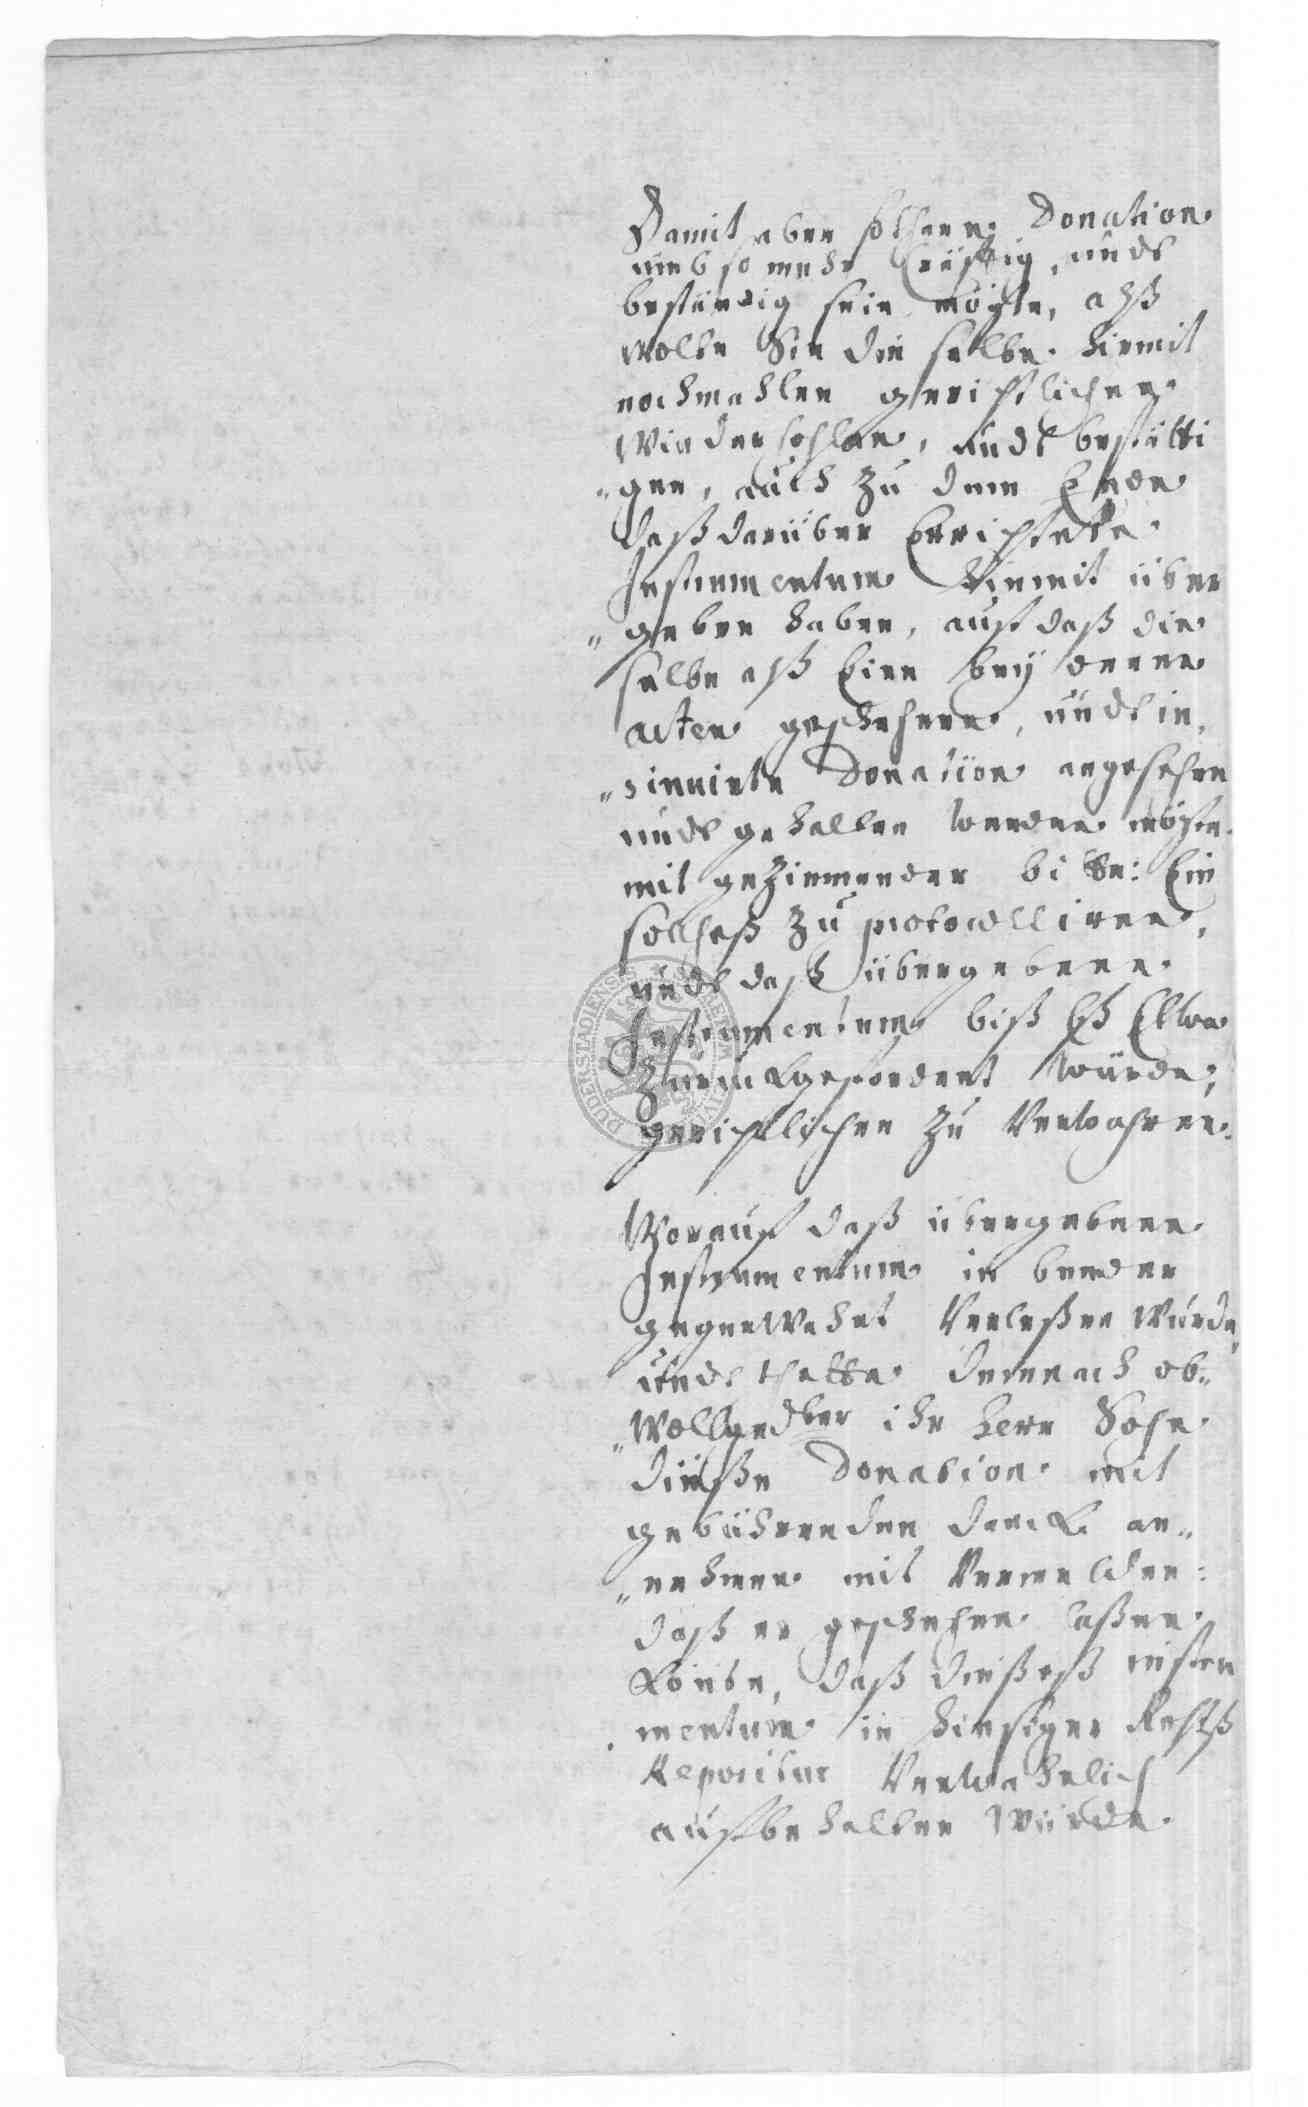 Damit aber solhane Donation
umb so mehr kräfftig, undt
beständig sein mögte, alß
wolte Sie die selbe hiemit
nochmahlen gerichtlichen
Wiederhohlen, undt bestätti
"gen, auch zu dem Ende
daß darüber Errichtete
Instrumentum hiemit über
"geben haben, auf daß die
selbe alß Eine bey denen
acten geschehene, undt in,
"sinuirte Donation angesehen
undt gehalten werden mögte
mit geziemender bitte: Ein
solcheß zu protocolliren,
undt daß übergebene
Instrumentum biß Eß Etwa
zurückgefordert würde,
gerichtlichen zu Verwahren.
Worauf daß übergebene
Instrumentum in beeder
gegenwahrt Verleßen wurde,
undt thatte demnach ob„
"Wollgedter ihr Herr Sohn
dieße Donation mit
gebührenden danck an„
"nehmen mit Vermelden:
daß er geschehen laßen
könte, daß dießeß instru
mentum in hiesiger Rahtß
Repositur Verwahrlich
aufbehalten würde.
DUDERSTADIENSIS